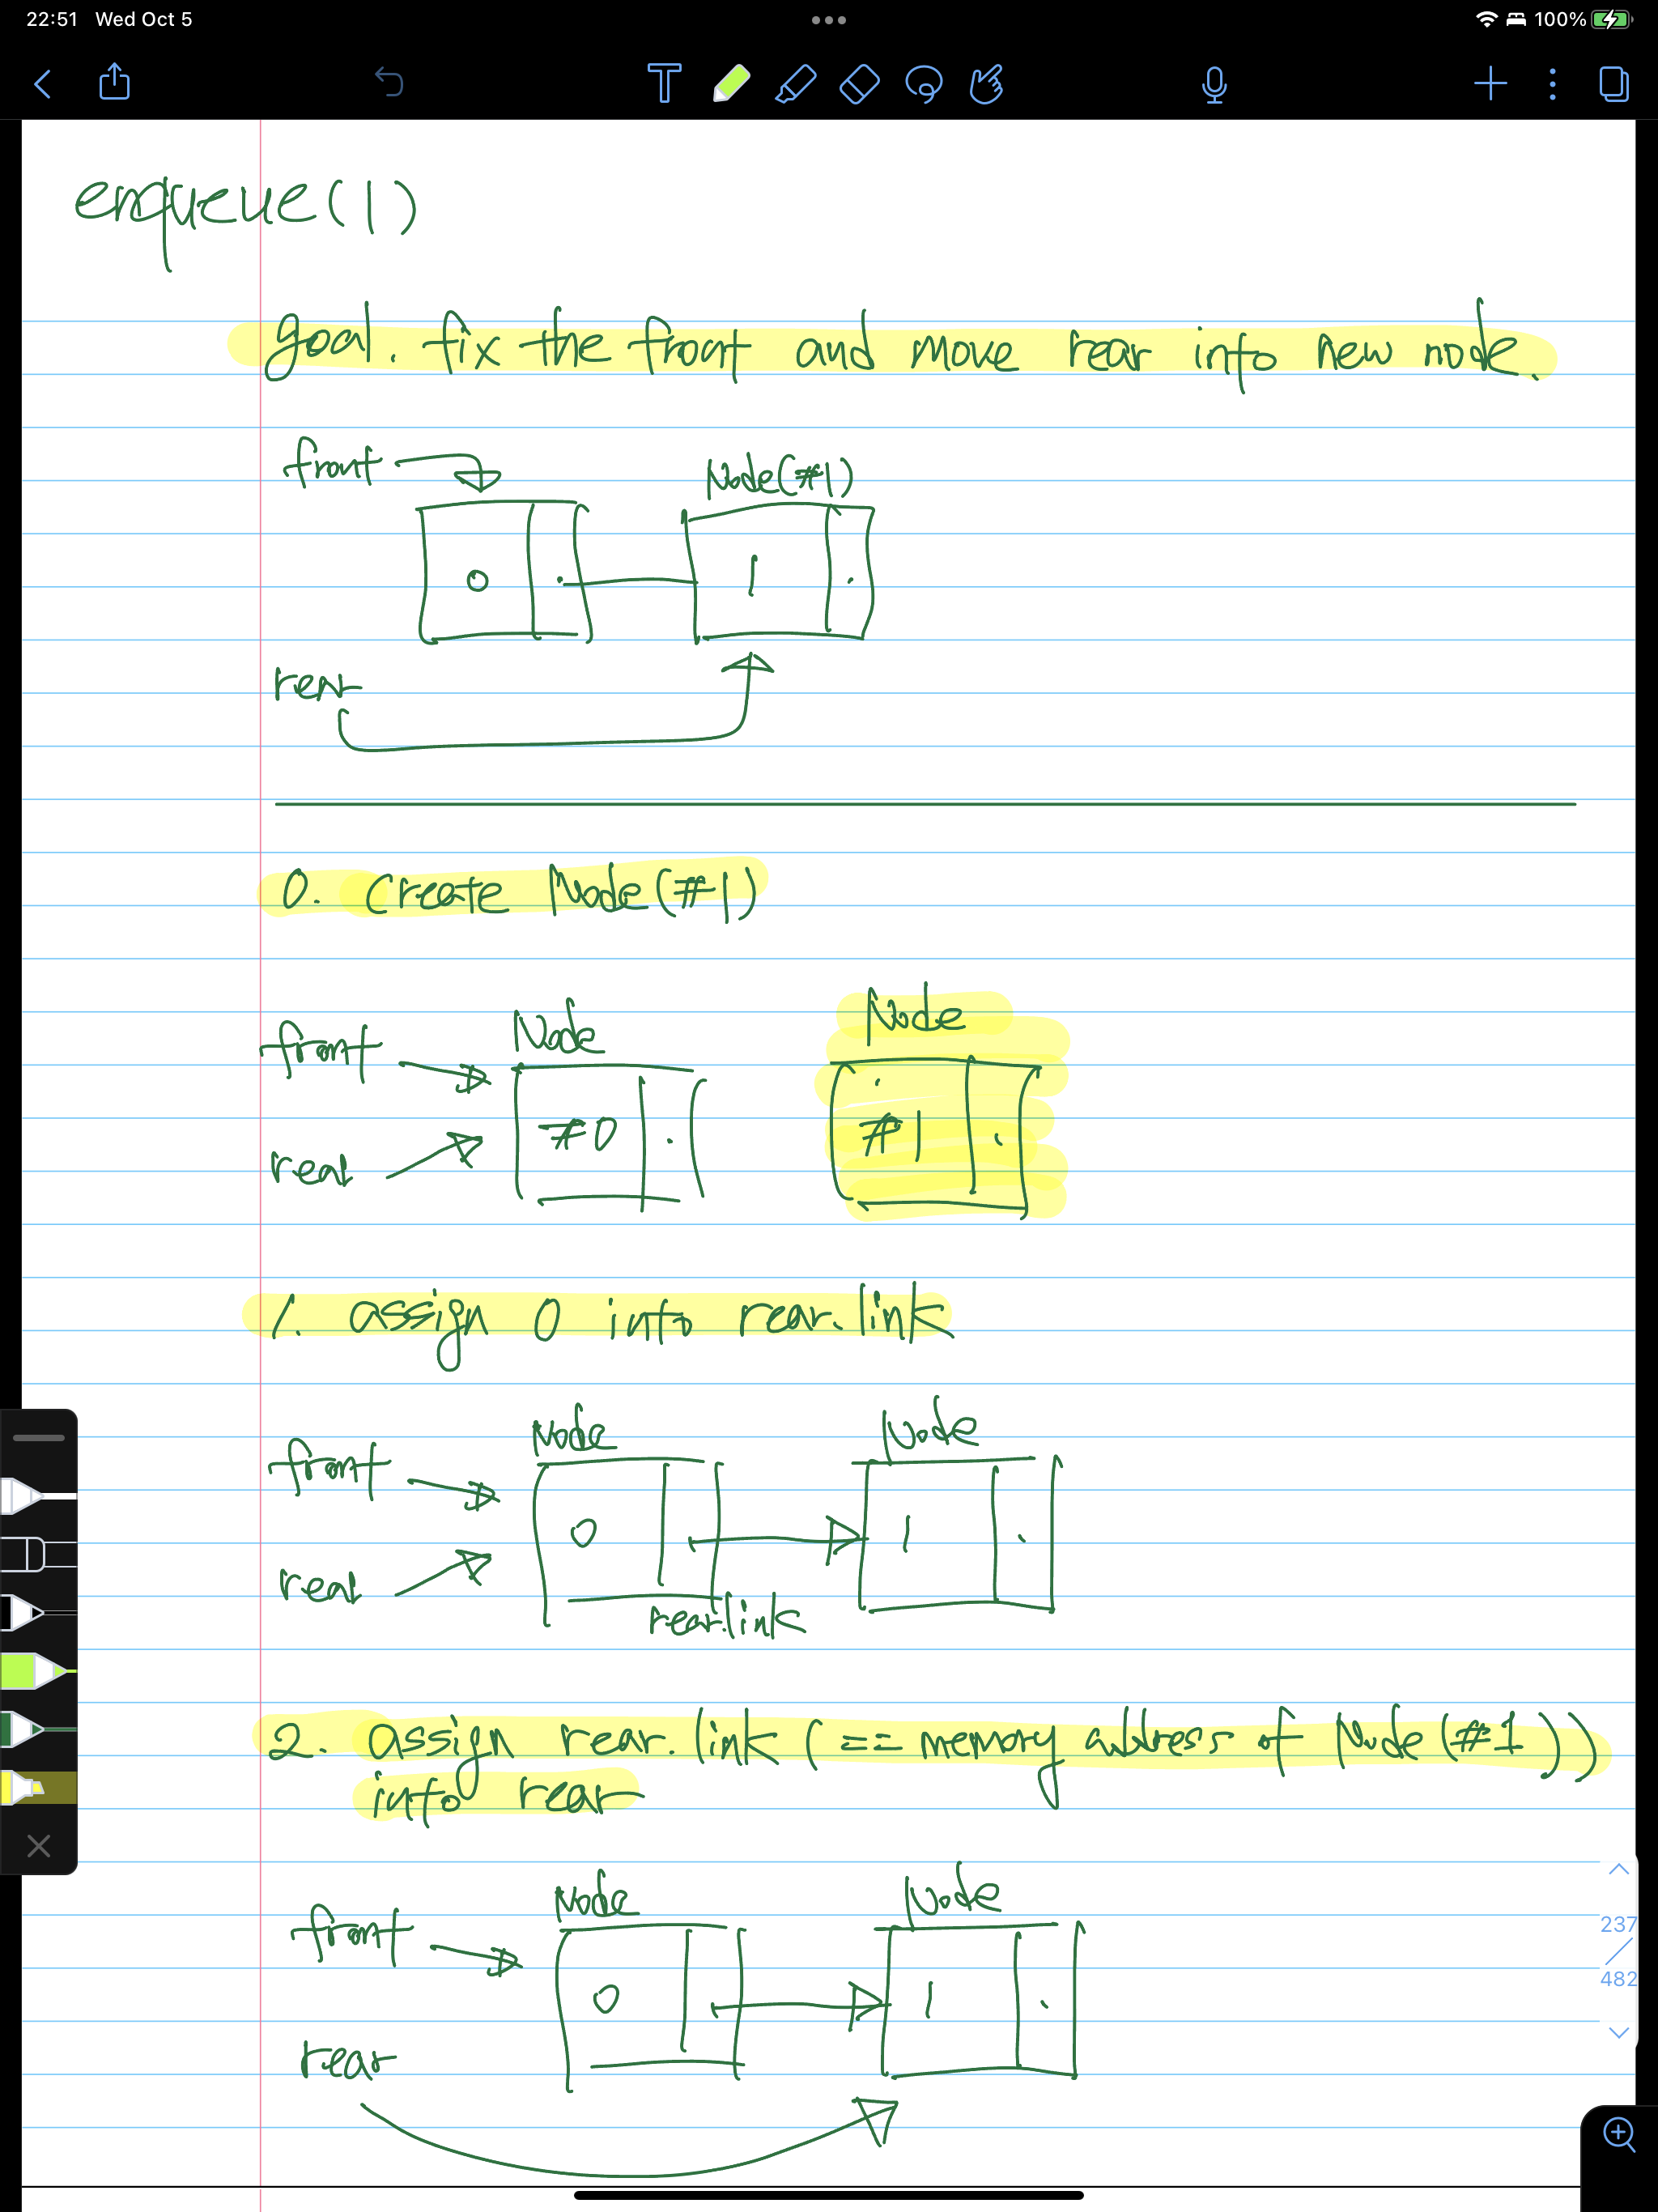 22:51 Wed Oct 5
100%
T
enqueue(1)
goal. fix the front and move rear into new node.
front
Node(#1)
0 1
rear
0. Create Node(#1)
Node
Node
front
#0 #1
rear
1. assign 0 into rear.link
Node
Node
front
0 1
rear
rear.link
2. assign rear.link (== memory address of Node(#1))
into rear
Node
Node
front
237
482
0 1
rear